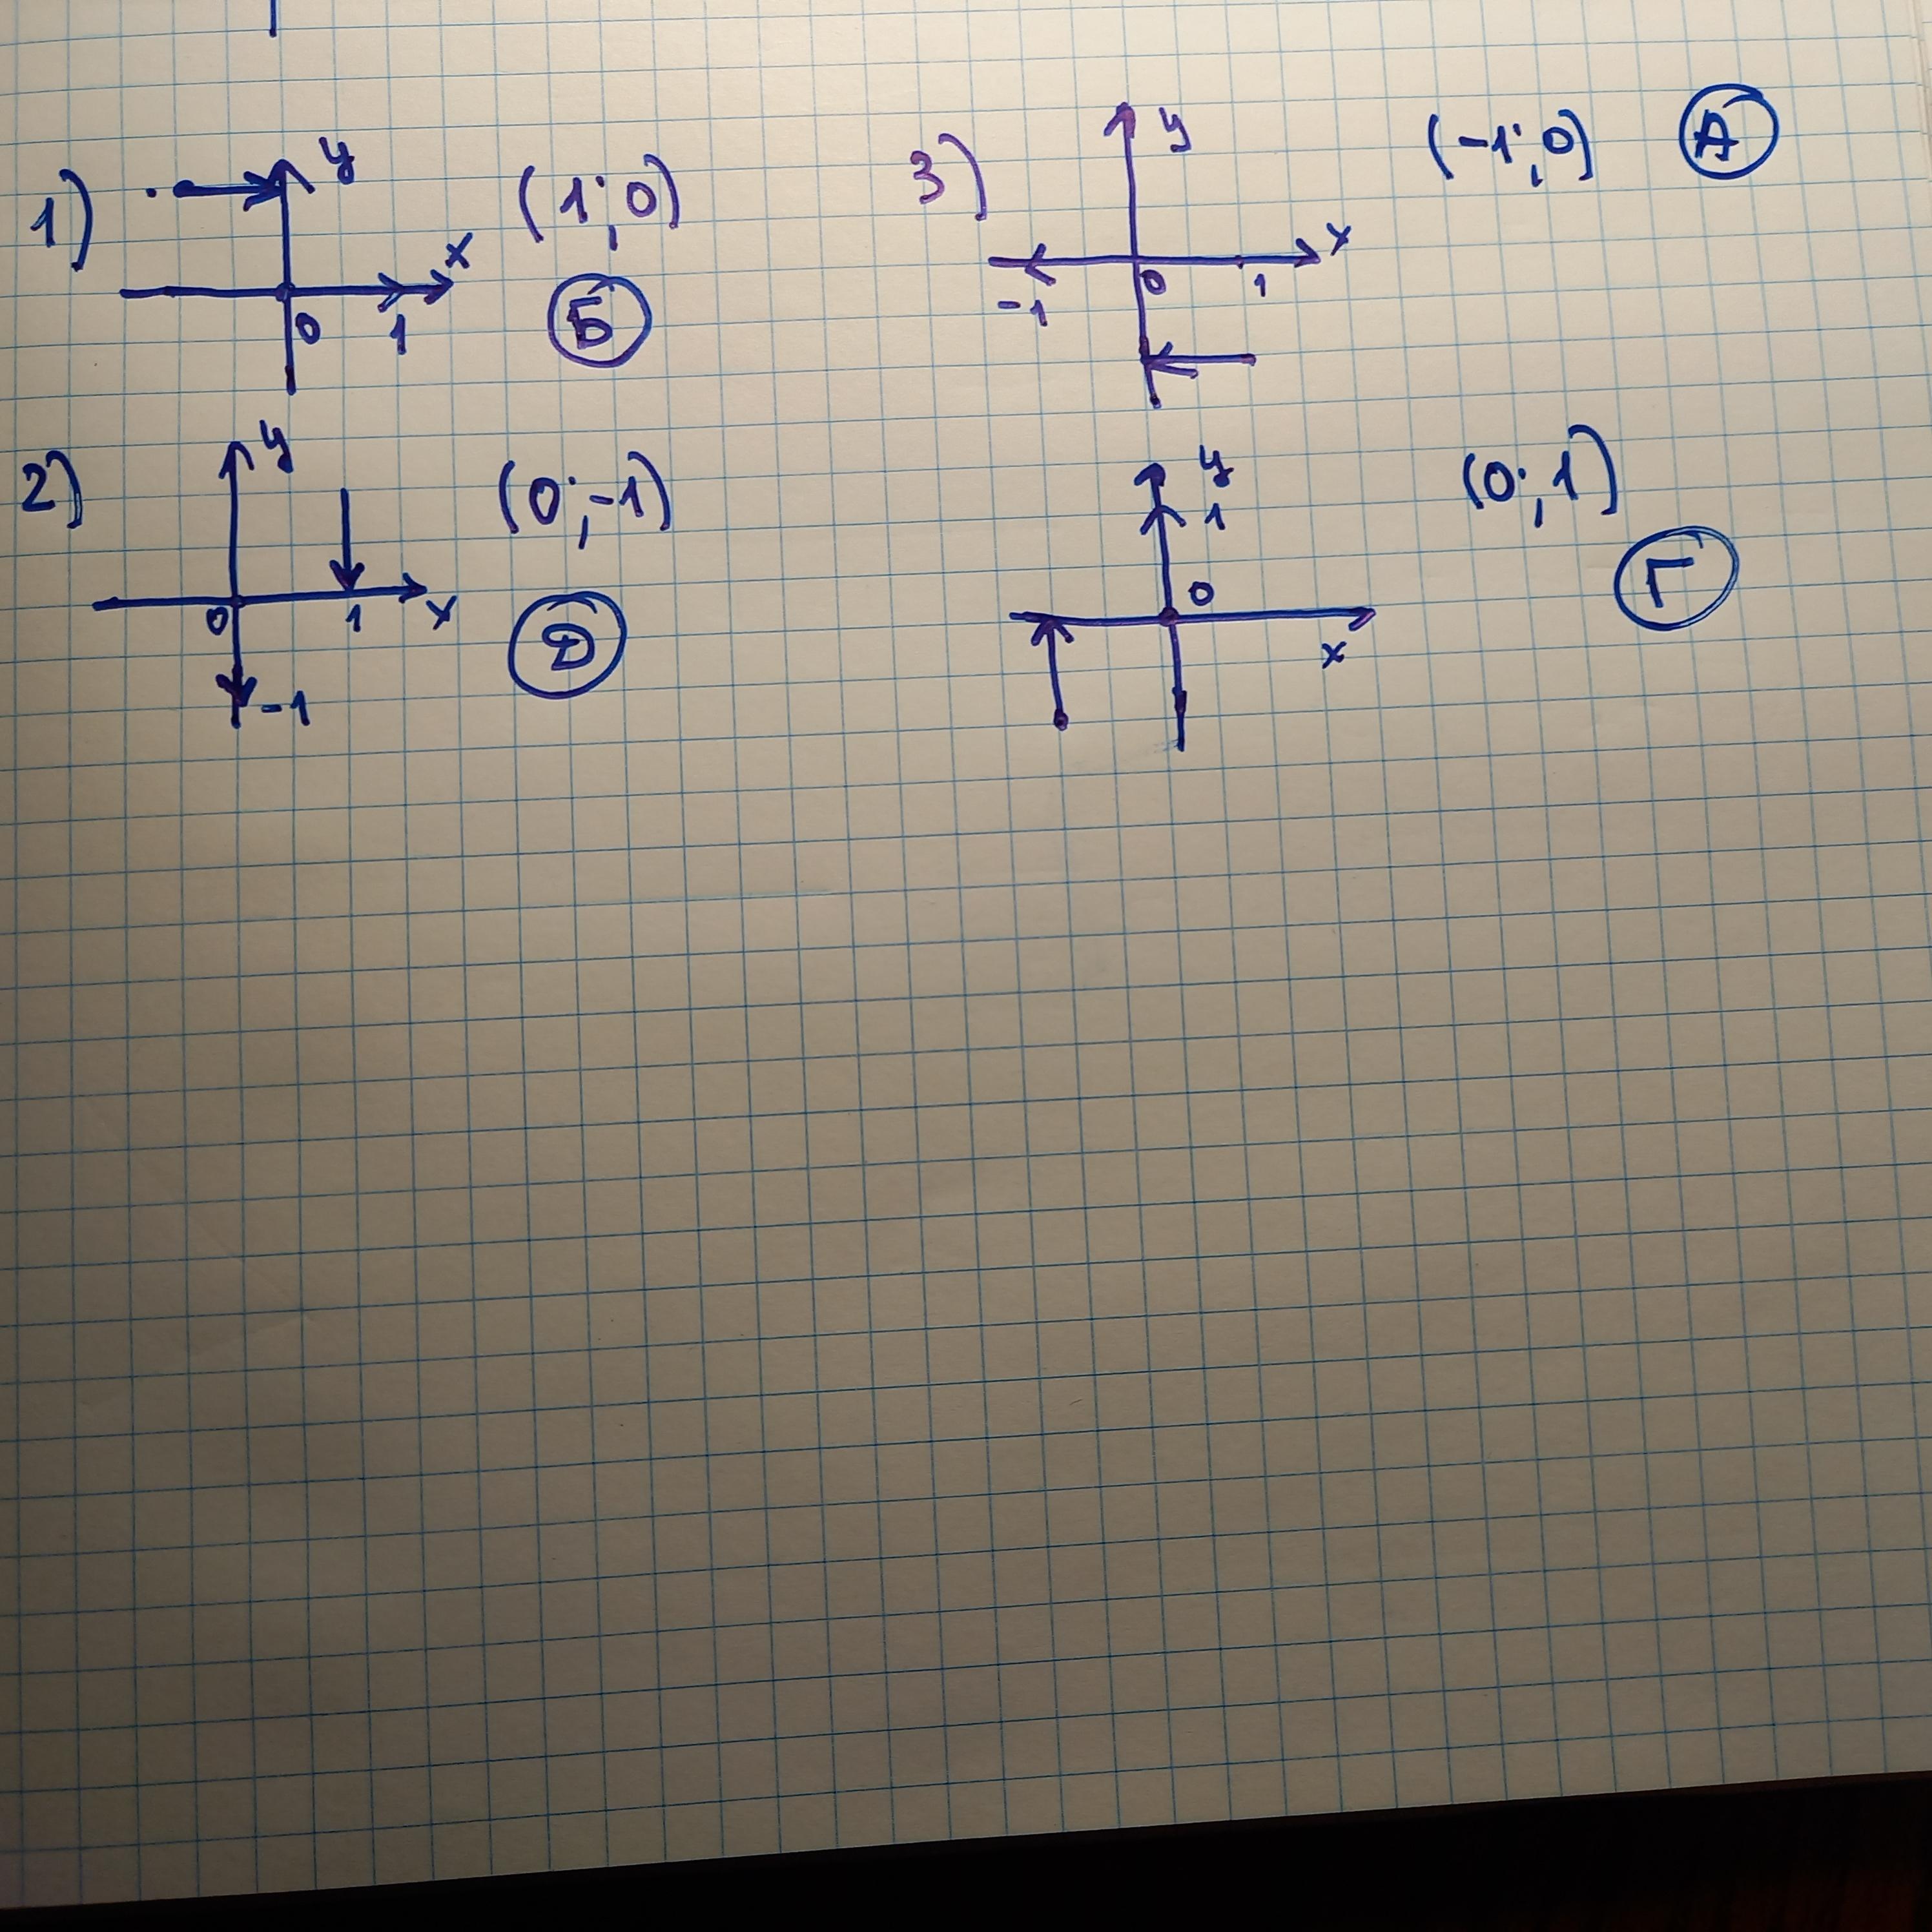 1) y (1; 0)
x
0 1 Б
2) y (0; -1)
0 1 x Д
-1
3) y (-1; 0) А
x
-1 0 1
y (0; 1)
1
0 Г
x